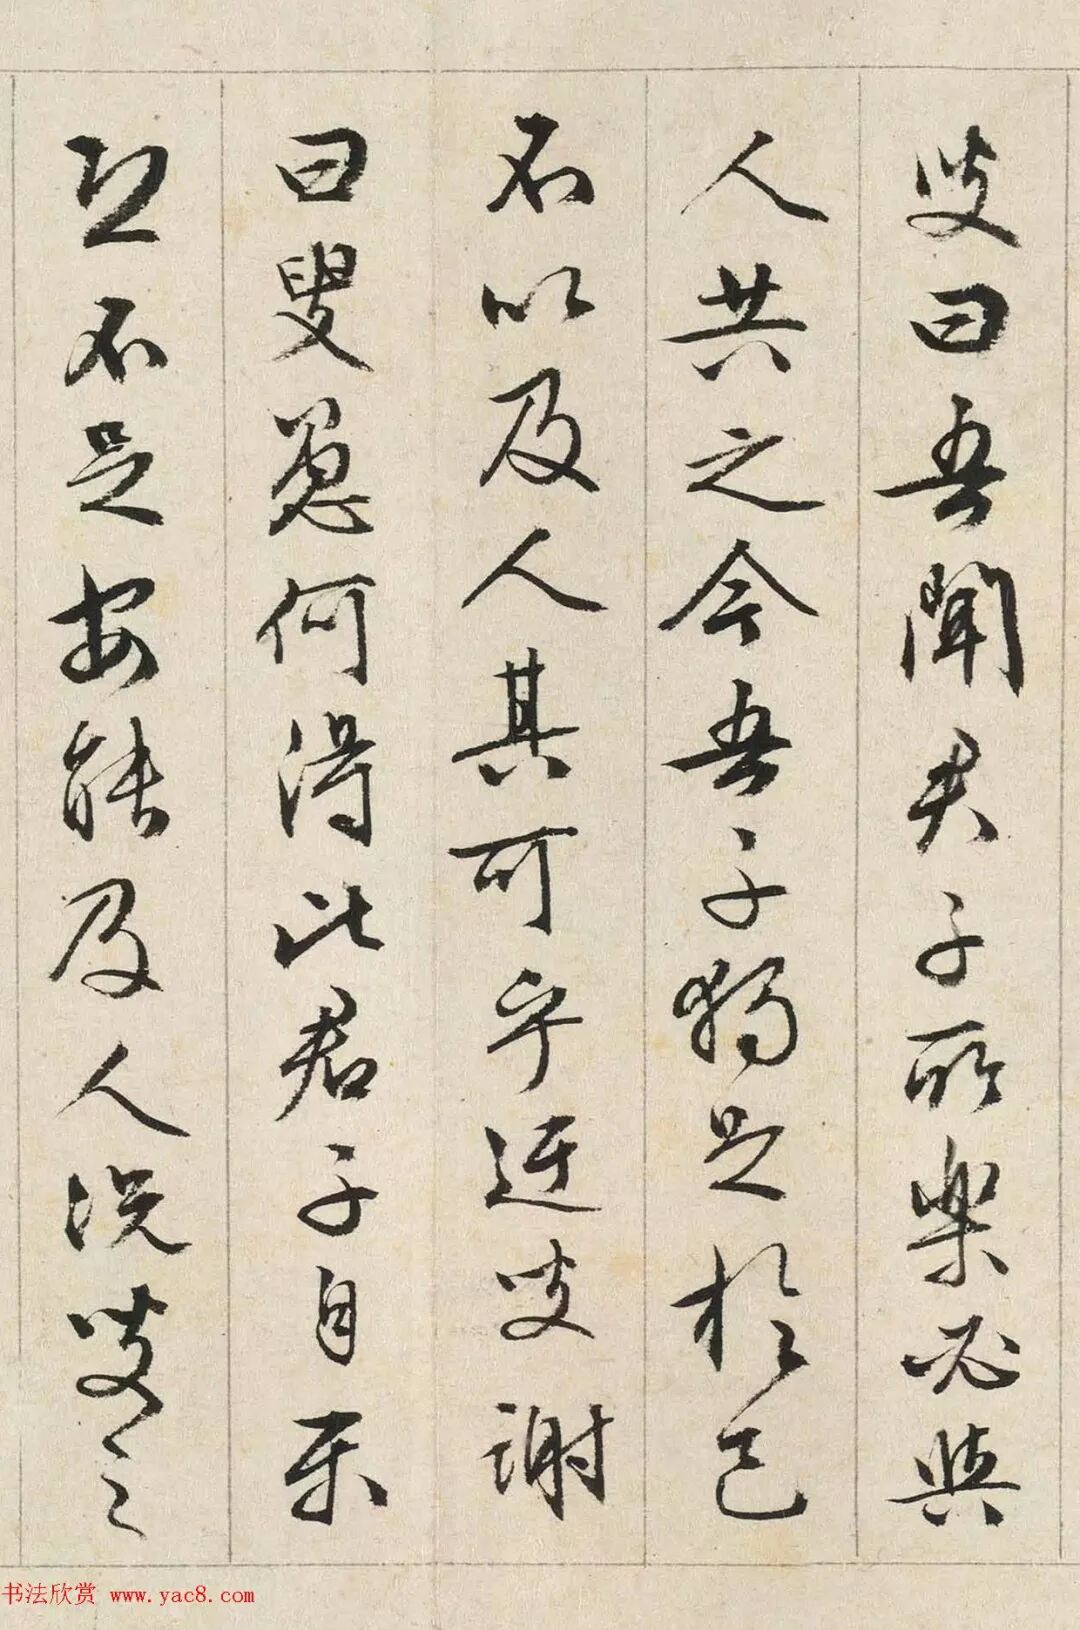 叟曰吾聞君子所樂必與
人共之今吾子獨足於己
不以及人其可乎迂叟謝
曰叟愚何得比君子自樂
恐不足安能及人況叟之
书法欣赏 www.yac8.com